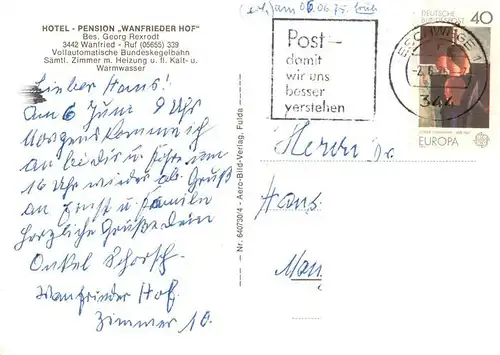 HOTEL - PENSION „WANFRIEDER HOF"
Bes. Georg Rexrodt
3442 Wanfried - Ruf (05655) 339
Vollautomatische Bundeskegelbahn
Sämtl. Zimmer m. Heizung u. fl. Kalt- u.
Warmwasser
Lieber Hans!
Am 6 Juni 9 Uhr
Morgens komme ich
an bei dir in
16 Uhr wieder ab. Gruß
an Ernst u. Familie
herzliche Grüße dein
Onkel Schorsch.
Wanfrieder Hof
Zimmer 10.
Nr. 640730/4 - Aero-Bild-Verlag, Fulda
am 06.06.75.
Post-
damit
wir uns
besser
verstehen
ESCHWEGE 1
344
DEUTSCHE
BUNDESPOST
40
EUROPA
Herrn Dr.
Hans